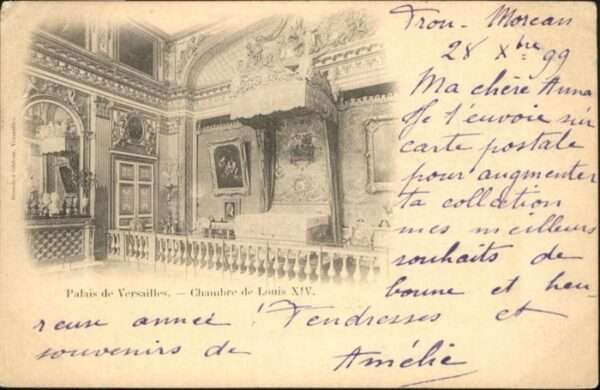 Trou-Moreau
28 Xbre 99
Ma chère Anna
Je t'envoie sur
carte postale
pour augmenter
ta collection
mes meilleurs
souhaits de
bonne et heu-
reuse année ! Tendresses et
souvenirs de Amélie
Palais de Versailles. — Chambre de Louis XIV.